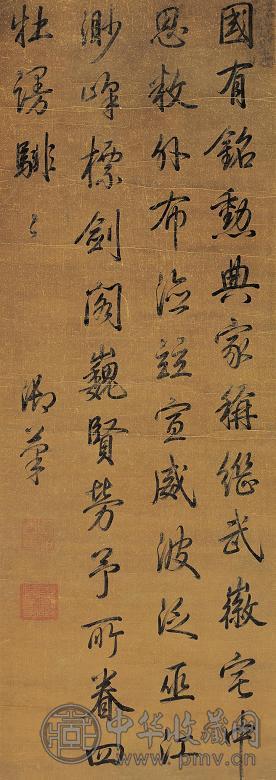 國有銘勳典家稱繼武徽宅中
恩敷外布德竝宣威波泛巫江
渺峰標劍閣巍賢勞予所眷四
牡謾騑〻
御筆
中华收藏网
www.pmv.cn